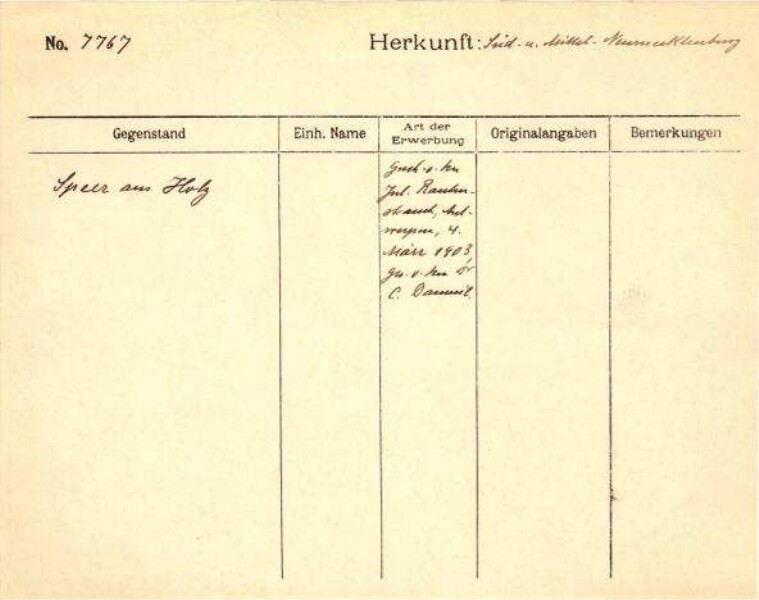 No. 7767
Herkunft: Süd- u. Mittel-Neumecklenburg
Gegenstand
Einh. Name
Art der Erwerbung
Originalangaben
Bemerkungen
Speer aus Holz
Gesch. v. Hn
Jul. Rauten-
strauch, Ant-
werpen, 4.
März 1903,
ges. v. Hn Dr
C. Dammil.